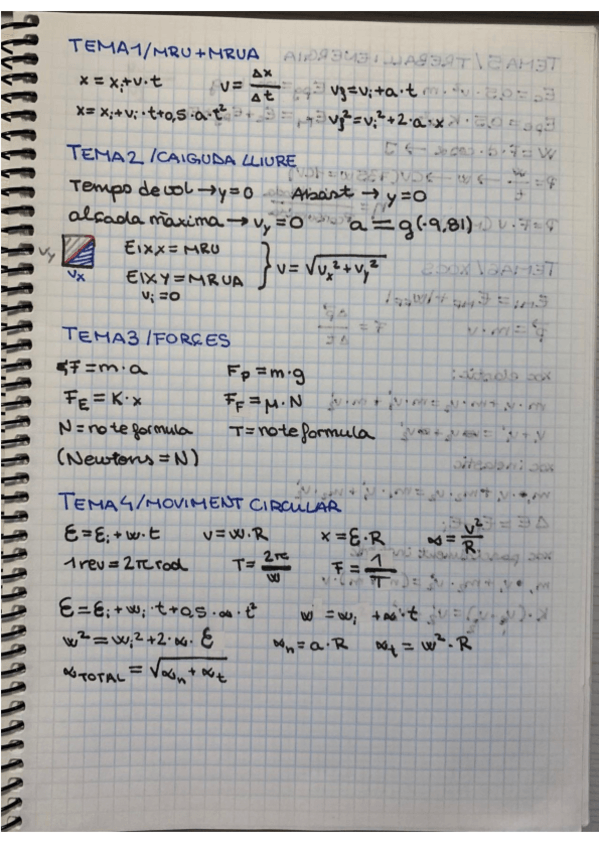 TEMA 1/MRU+MRUA
x = xᵢ+v·t v = Δx/Δt vf = vᵢ+a·t
x = xᵢ+vᵢ·t+0,5·a·t² vf² = vᵢ²+2·a·x
TEMA 2/CAIGUDA LLIURE
Tempo de vol → y=0 Abast → y=0
alçada màxima → v_y=0 a = g(-9,81)
v_y EIX x = MRU
v_x EIX Y = MRUA } v = √(v_x²+v_y²)
vᵢ=0
TEMA 3/FORCES
F = m·a F_P = m·g
F_E = K·x F_F = μ·N
N = no te formula T = no te formula
(Newtons = N)
TEMA 4/MOVIMENT CIRCULAR
Ɛ = Ɛᵢ+w·t v = w·R x = Ɛ·R α = v²/R
1 rev = 2π rad T = 2π/w F = 1/T
Ɛ = Ɛᵢ+wᵢ·t+0,5·α·t² w = wᵢ +α·t
w² = wᵢ²+2·α·Ɛ αₙ = a·R αₜ = w²·R
α_TOTAL = √(αₙ+αₜ)